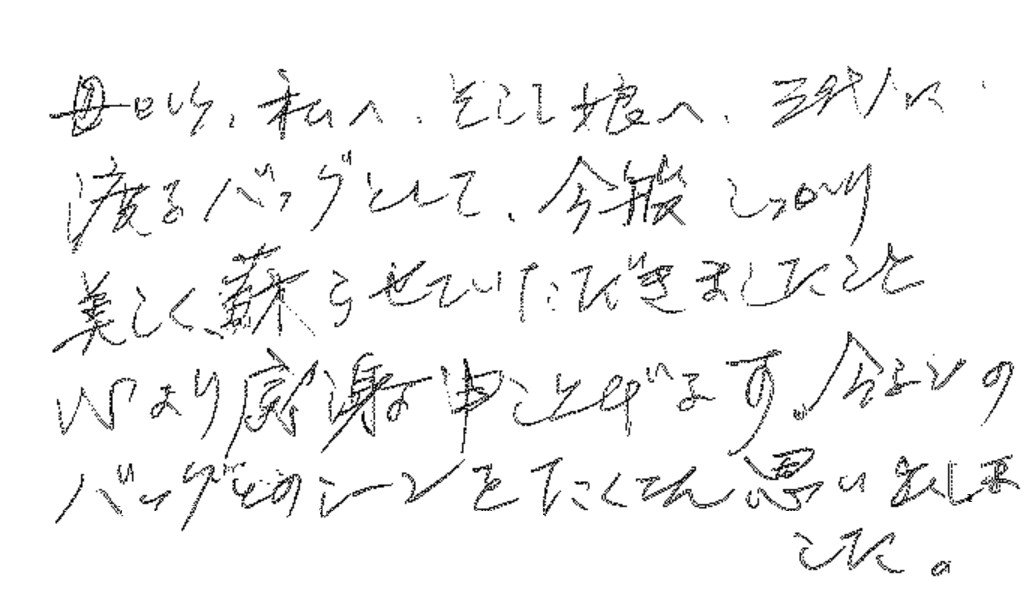 母から、私へ、そして娘へ、三代に
渡るバッグとして、今般しっかり
美しく蘇らせていただきましたこと
心より感謝申し上げます。
バッグとのシーンをたくさん思い出しま
した。